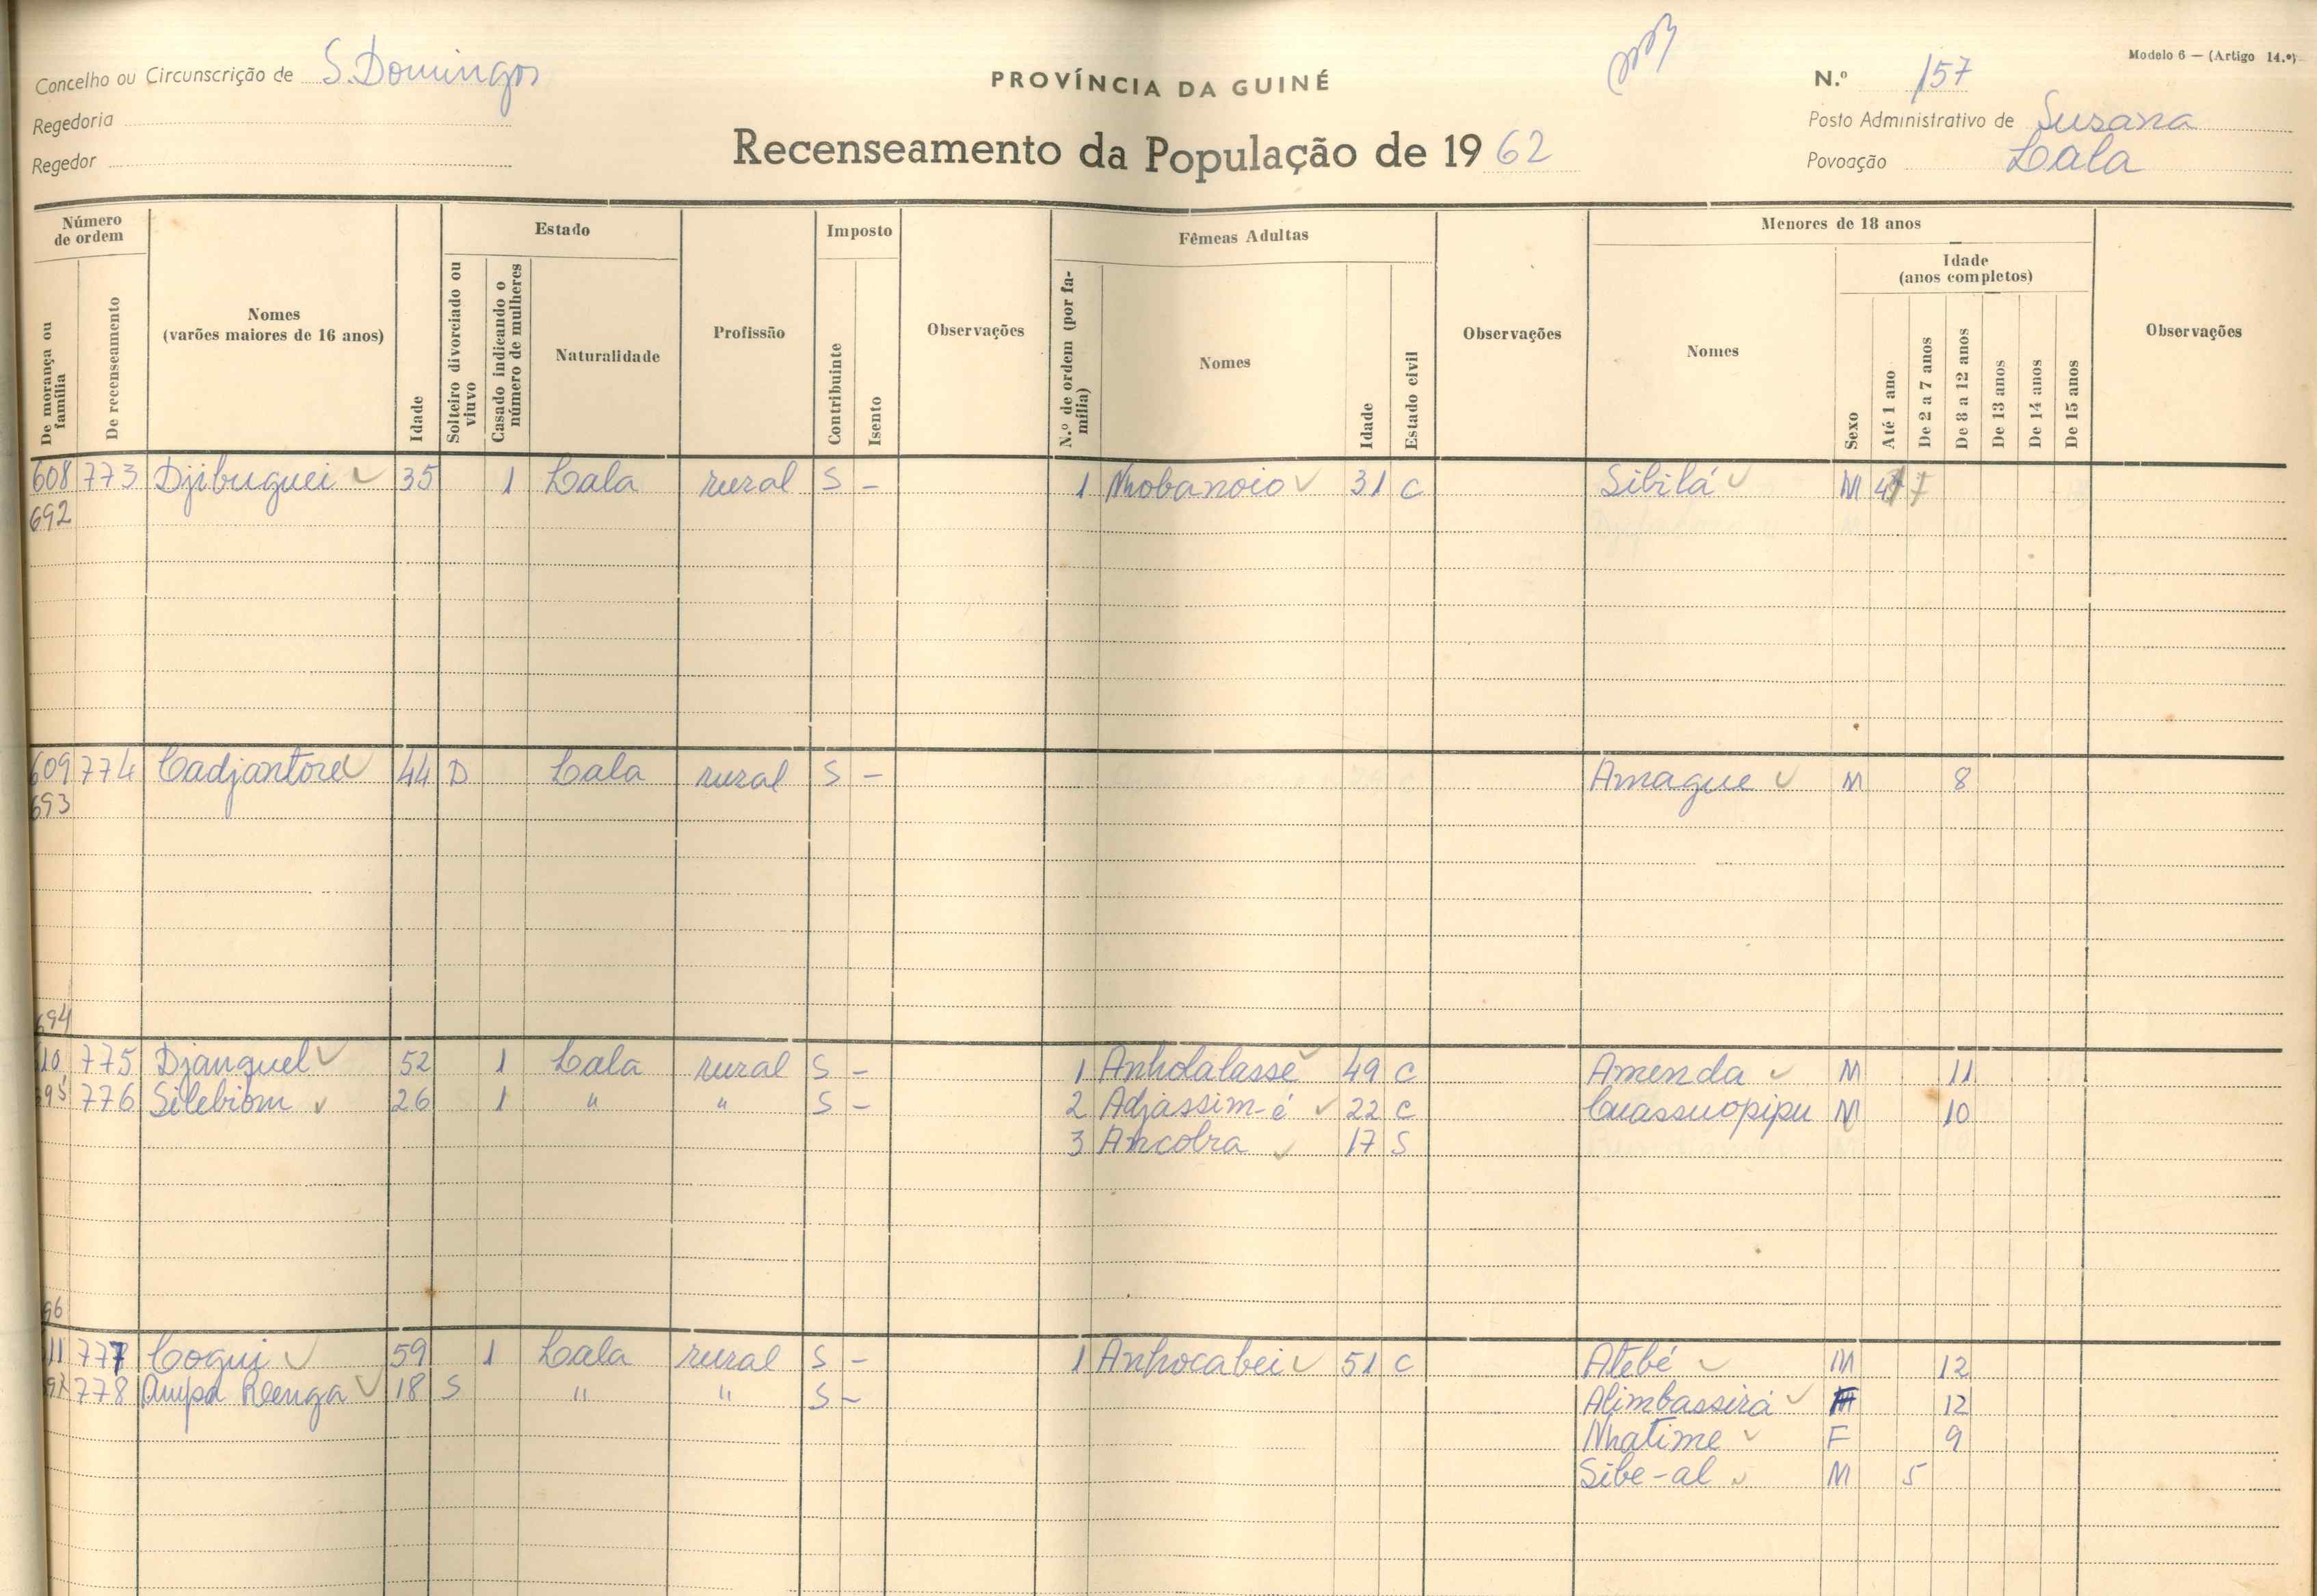 Modelo 6 — (Artigo 14.º)
Concelho ou Circunscrição de S. Domingos
PROVÍNCIA DA GUINÉ
N.º 157
Regedoria
Posto Administrativo de Susana
Regedor
Recenseamento da População de 1962
Povoação Lala
Número de ordem
De morança ou família
De recenseamento
Nomes (varões maiores de 16 anos)
Idade
Estado
Solteiro divorciado ou viuvo
Casado indicando o número de mulheres
Naturalidade
Profissão
Imposto
Contribuinte
Isento
Observações
Fêmeas Adultas
N.º de ordem (por família)
Nomes
Idade
Estado civil
Observações
Menores de 18 anos
Nomes
Sexo
Idade (anos completos)
Até 1 ano
De 2 a 7 anos
De 8 a 12 anos
De 13 anos
De 14 anos
De 15 anos
Observações
608 773 Djibuguei 35 1 Lala rural S – 1 Nhobanoio 31 C Sibilá M
692
609 774 Cadjantore 44 D Lala rural S – Amague M 8
693
694
10 775 Djanguel 52 1 Lala rural S – 1 Anholalasse 49 C Amenda M 11
95 776 Silebiom 26 1 " " S – 2 Adjassim-é 22 C Cuassuopipu M 10
3 Ancobra 17 S
96
11 777 Cogui 59 1 Lala rural S – 1 Anhocabei 51 C Atebé M 12
97 778 Ampa 18 S " " S – Alimbassirá 12
Nhatime F 9
Sibe-al M 5